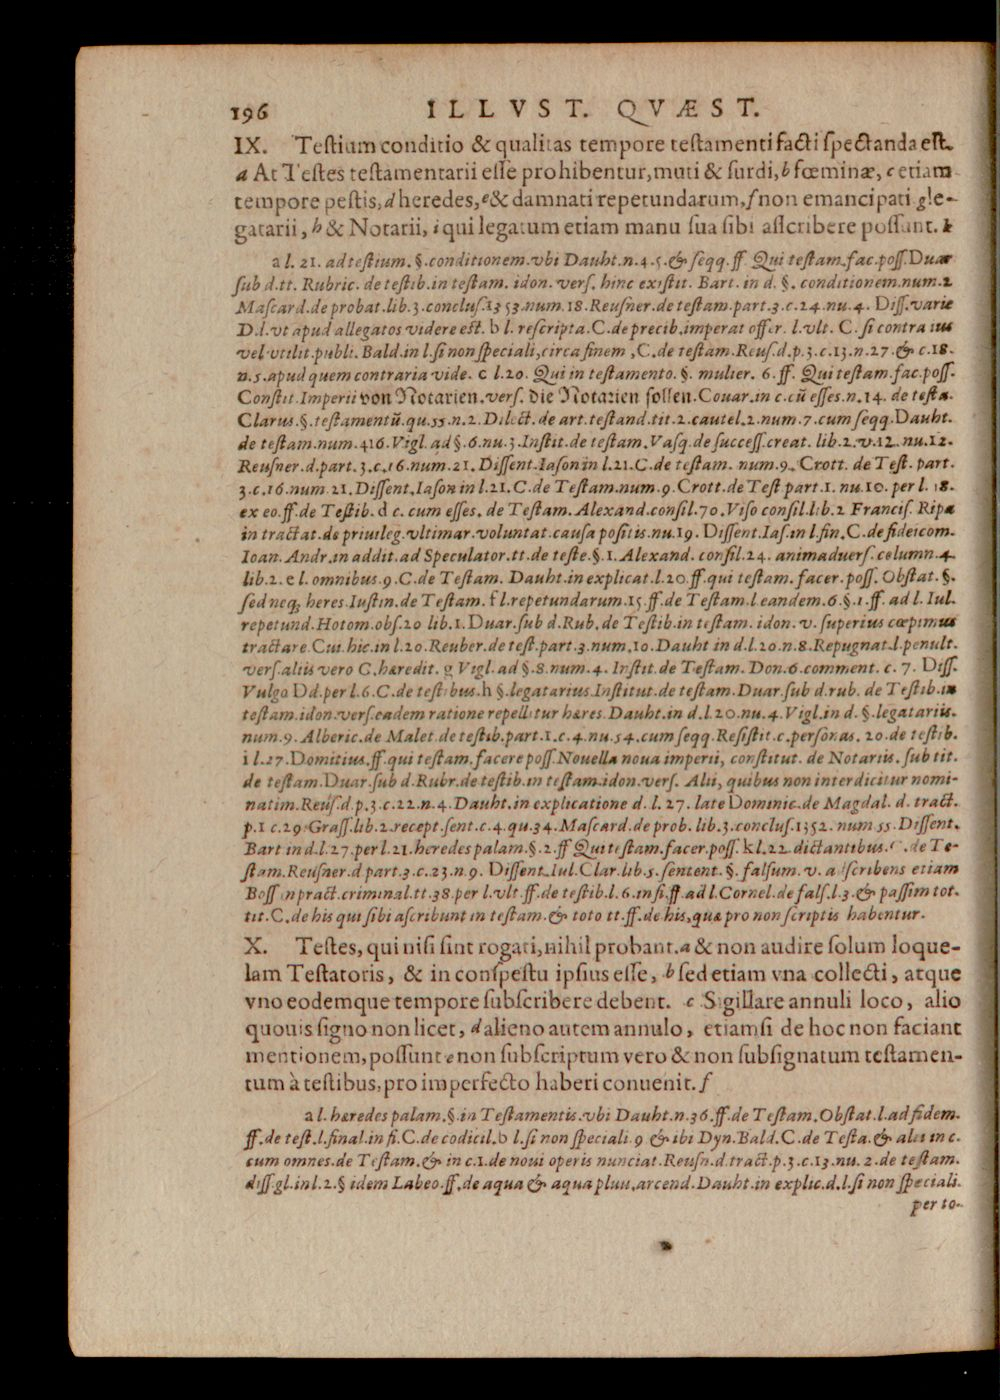 196 ILLVST. QVÆST.
IX. Teſtium conditio & qualitas tempore teſtamenti facti ſpectanda eſt.
a At Teſtes teſtamentarii eſſe prohibentur, muti & ſurdi, b fœminæ, c etiam
tempore peſtis, d heredes, e & damnati repetundarum, f non emancipati g le-
gatarii, h & Notarii, i qui legatum etiam manu ſua ſibi aſſcribere poſſunt. k
a l. 21. ad teſtium. §. conditionem. vbi Dauht. n. 4. 5. & ſeqq. ff. Qui teſtam. fac. poſſ. Duar
ſub d. tt. Rubric. de teſtib. in teſtam. idon. verſ. hinc exiſtit. Bart. in d. §. conditionem. num. 2
Maſcard. de probat. lib. 3. concluſ. 1353. num. 18. Reuſner. de teſtam. part. 3. c. 24. nu. 4. Diſſ. varie
D. l. vt apud allegatos videre eſt. b l. reſcripta. C. de precib. imperat offer. l. vlt. C. ſi contra ius
vel vtilit. publi. Bald. in l. ſi non ſpeciali, circa finem, C. de teſtam. Reuſ. d. p. 3. c. 13. n. 27. & c. 18.
n. 5. apud quem contraria vide. c l. 20. Qui in teſtamento. §. mulier. 6. ff. Qui teſtam. fac. poſſ.
Conſtit. Imperii von Notarien. verſ. die Notarien ſollen. Couar. in c. cū eſſes. n. 14. de teſta.
Clarus. §. teſtamentū. qu. 55. n. 2. Dilect. de art. teſtand. tit. 2. cautel. 2. num. 7. cum ſeqq. Dauht.
de teſtam. num. 416. Vigl. ad §. 6. nu. 3. Inſtit. de teſtam. Vaſq. de ſucceſſ. creat. lib. 2. v. 12. nu. 12.
Reuſner. d. part. 3. c. 16. num. 21. Diſſent. Iaſon in l. 21. C. de teſtam. num. 9. Crott. de Teſt. part.
3. c. 16. num. 21. Diſſent. Iaſon in l. 21. C. de Teſtam. num. 9. Crott. de Teſt part. 1. nu. 10. per l. 18.
ex eo. ff. de Teſtib. d c. cum eſſes. de Teſtam. Alexand. conſil. 70. Viſo conſil. lib. 2 Franciſ. Ripa
in tractat. de priuileg. vltimar. voluntat. cauſa poſitis. nu. 19. Diſſent. Iaſ. in l. fin. C. de fideicom.
Ioan. Andr. in addit. ad Speculator. tt. de teſte. §. 1. Alexand. conſil. 24. animaduerſ. column. 4.
lib. 2. e l. omnibus. 9. C. de Teſtam. Dauht. in explicat. l. 20. ff. qui teſtam. facer. poſſ. Obſtat. §.
ſed neq; heres. Iuſtin. de Teſtam. f l. repetundarum. 15. ff. de Teſtam. l eandem. 6. §. 1. ff. ad l. Iul.
repetund. Hotom. obſ. 20 lib. 1. Duar. ſub d. Rub. de Teſtib. in teſtam. idon. v. ſuperius cœpimus
tractare. Cui. hic. in l. 20. Reuber. de teſt. part. 3. num. 10. Dauht in d. l. 20. n. 8. Repugnat. l. penult.
verſ. aliis vero C. hæredit. g Vigl. ad §. 8. num. 4. Inſtit. de Teſtam. Don. 6. comment. c. 7. Diſſ.
Vulgo Dd. per l. 6. C. de teſtibus. h §. legatarius. Inſtitut. de teſtam. Duar. ſub d. rub. de Teſtib. in
teſtam. idon. verſ. eadem ratione repellitur hæres. Dauht. in d. l. 20. nu. 4. Vigl. in d. §. legatariis.
num. 9. Alberic. de Malet. de teſtib. part. 1. c. 4. nu. 54. cum ſeqq. Reſiſtit. c. perſonas. 20. de teſtib.
i l. 27. Domitius. ff. qui teſtam. facere poſſ. Nouella noua imperii, conſtitut. de Notariis. ſub tit.
de teſtam. Duar. ſub d. Rubr. de teſtib. in teſtam. idon. verſ. Alii, quibus non interdicitur nomi-
natim. Reuſ. d. p. 3. c. 22. n. 4. Dauht. in explicatione d. l. 27. late Dominic. de Magdal. d. tract.
p. 1 c. 29. Graſſ. lib. 2. recept. ſent. c. 4. qu. 34. Maſcard. de prob. lib. 3. concluſ. 1352. num. 55. Diſſent.
Bart in d. l. 27. per l. 21. heredes palam. §. 2. ff Qui teſtam. facer. poſſ. k l. 22. dictantibus. C. de Te-
ſtam. Reuſner. d part. 3. c. 23. n. 9. Diſſent. Iul. Clar. lib. 5. ſentent. §. falſum. v. adſcribens etiam
Boſſ in pract. criminal. tt. 38. per l. vlt. ff. de teſtib. l. 6. in fi. ff. ad l. Cornel. de falſ. l. 3. & paſſim tot.
tit. C. de his qui ſibi aſcribunt in teſtam. & toto tt. ff. de his, quæ pro non ſcriptis habentur.
X. Teſtes, qui niſi ſint rogati, nihil probant. a & non audire ſolum loque-
lam Teſtatoris, & in conſpectu ipſius eſſe, b ſed etiam vna collecti, atque
vno eodemque tempore ſubſcribere debent. c Sigillare annuli loco, alio
quouis ſigno non licet, d alieno autem annulo, etiamſi de hoc non faciant
mentionem, poſſunt e non ſubſcriptum vero & non ſubſignatum teſtamen-
tum à teſtibus, pro imperfecto haberi conuenit. f
a l. hæredes palam. §. in Teſtamentis. vbi Dauht. n. 36. ff. de Teſtam. Obſtat. l. ad fidem.
ff. de teſt. l. final. in fi. C. de codicil. b l. ſi non ſpeciali. 9 & ibi Dyn. Bald. C. de Teſta. & alii in c.
cum omnes. de Teſtam. & in c. 1. de noui operis nunciat. Reuſn. d. tract. p. 3. c. 13. nu. 2. de teſtam.
diſſ. gl. in l. 2. § idem Labeo. ff. de aqua & aqua pluu. arcend. Dauht. in explic. d. l. ſi non ſpeciali.
per to-